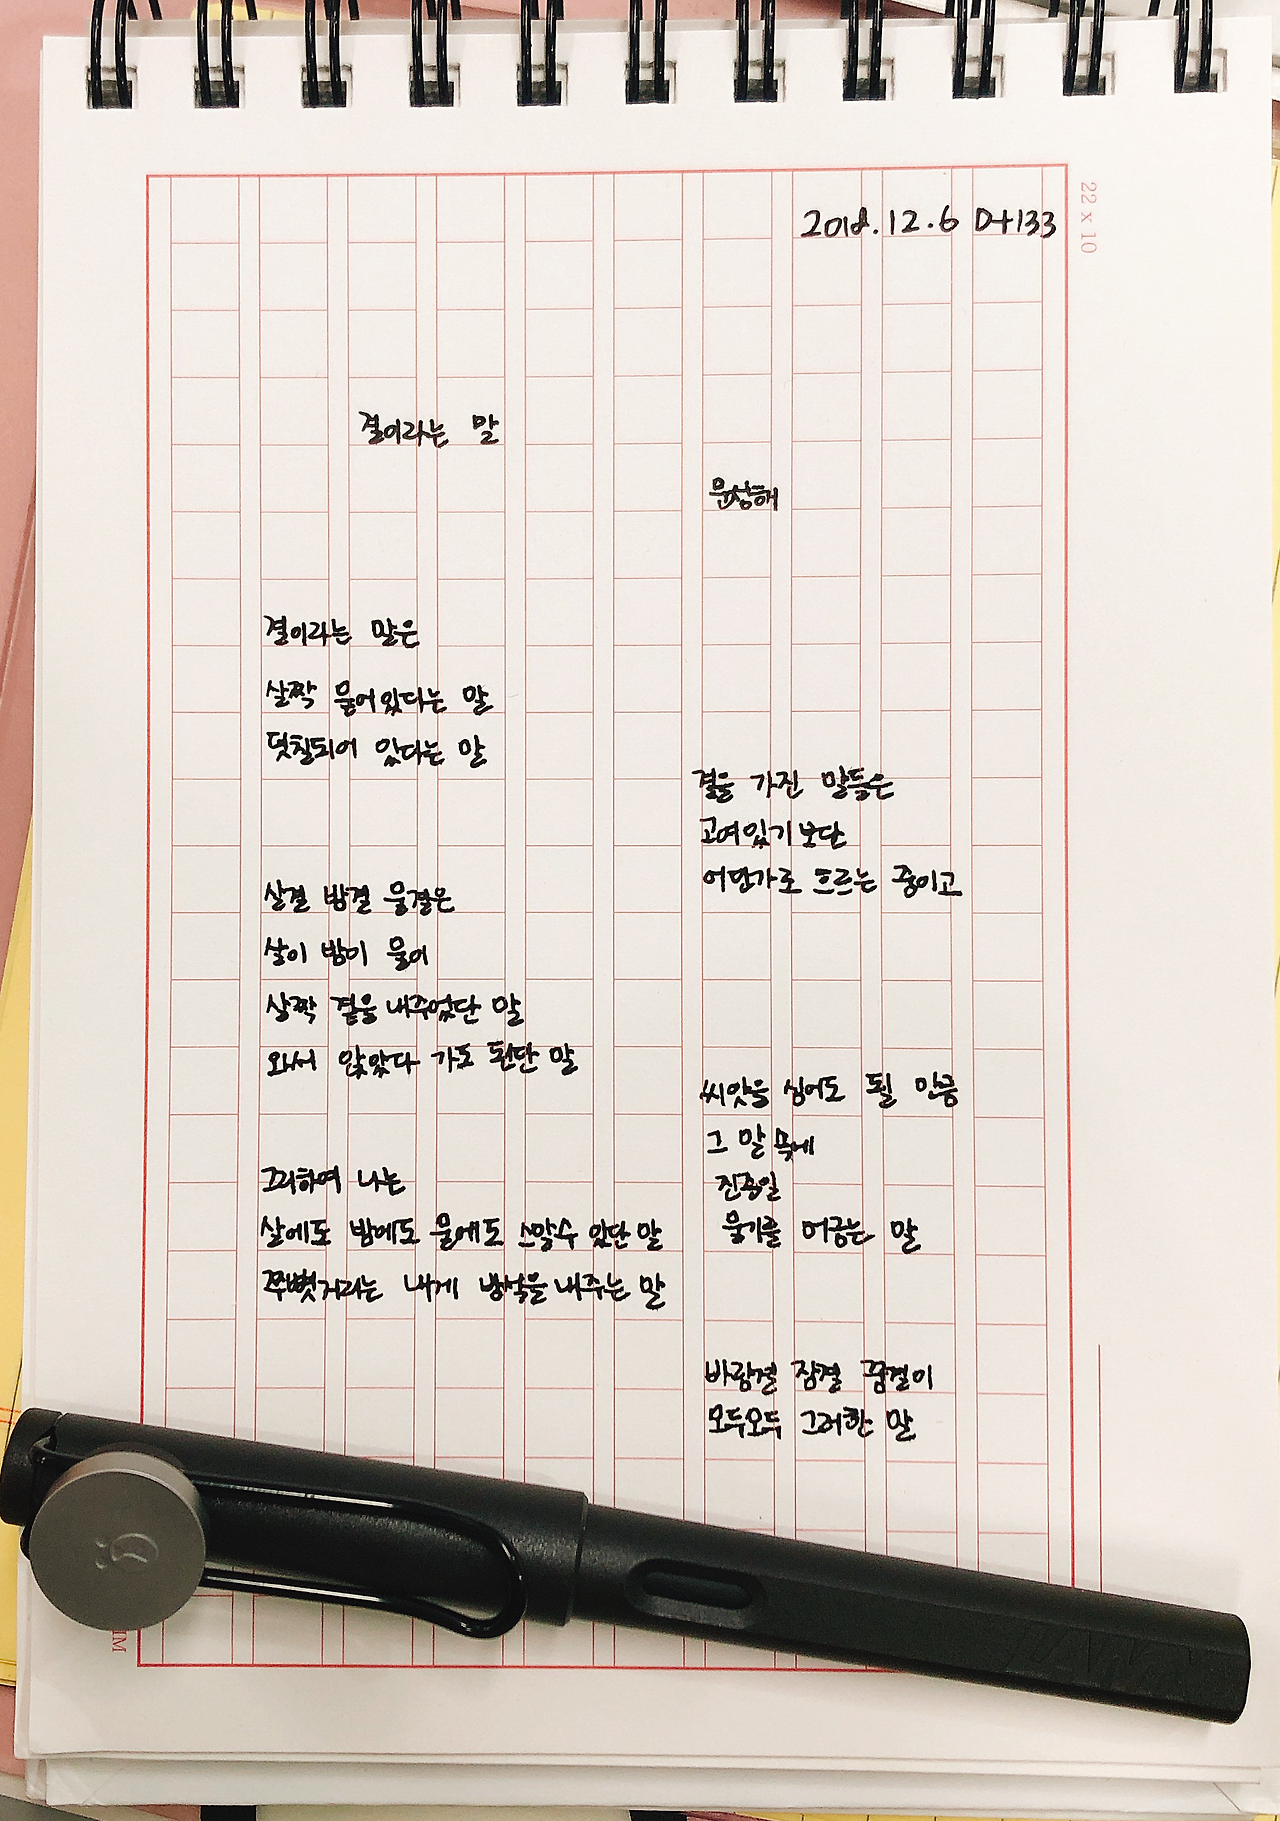 2018.12.6 D+133
22 x 10
결이라는 말
문성해
결이라는 말은
살짝 묻어있다는 말
덧칠되어 있다는 말
살결 밤결 물결은
살이 밤이 물이
살짝 곁을 내주었단 말
와서 앉았다 가도 된단 말
그리하여 나는
살에도 밤에도 물에도 스밀수 있단 말
쭈뼛거리는 내게 방석을 내주는 말
결을 가진 말들은
고여있기 보단
어딘가로 흐르는 중이고
씨앗을 심어도 될 만큼
그 말 속에
진종일
물기를 머금는 말
바람결 잠결 꿈결이
모두모두 그러한 말